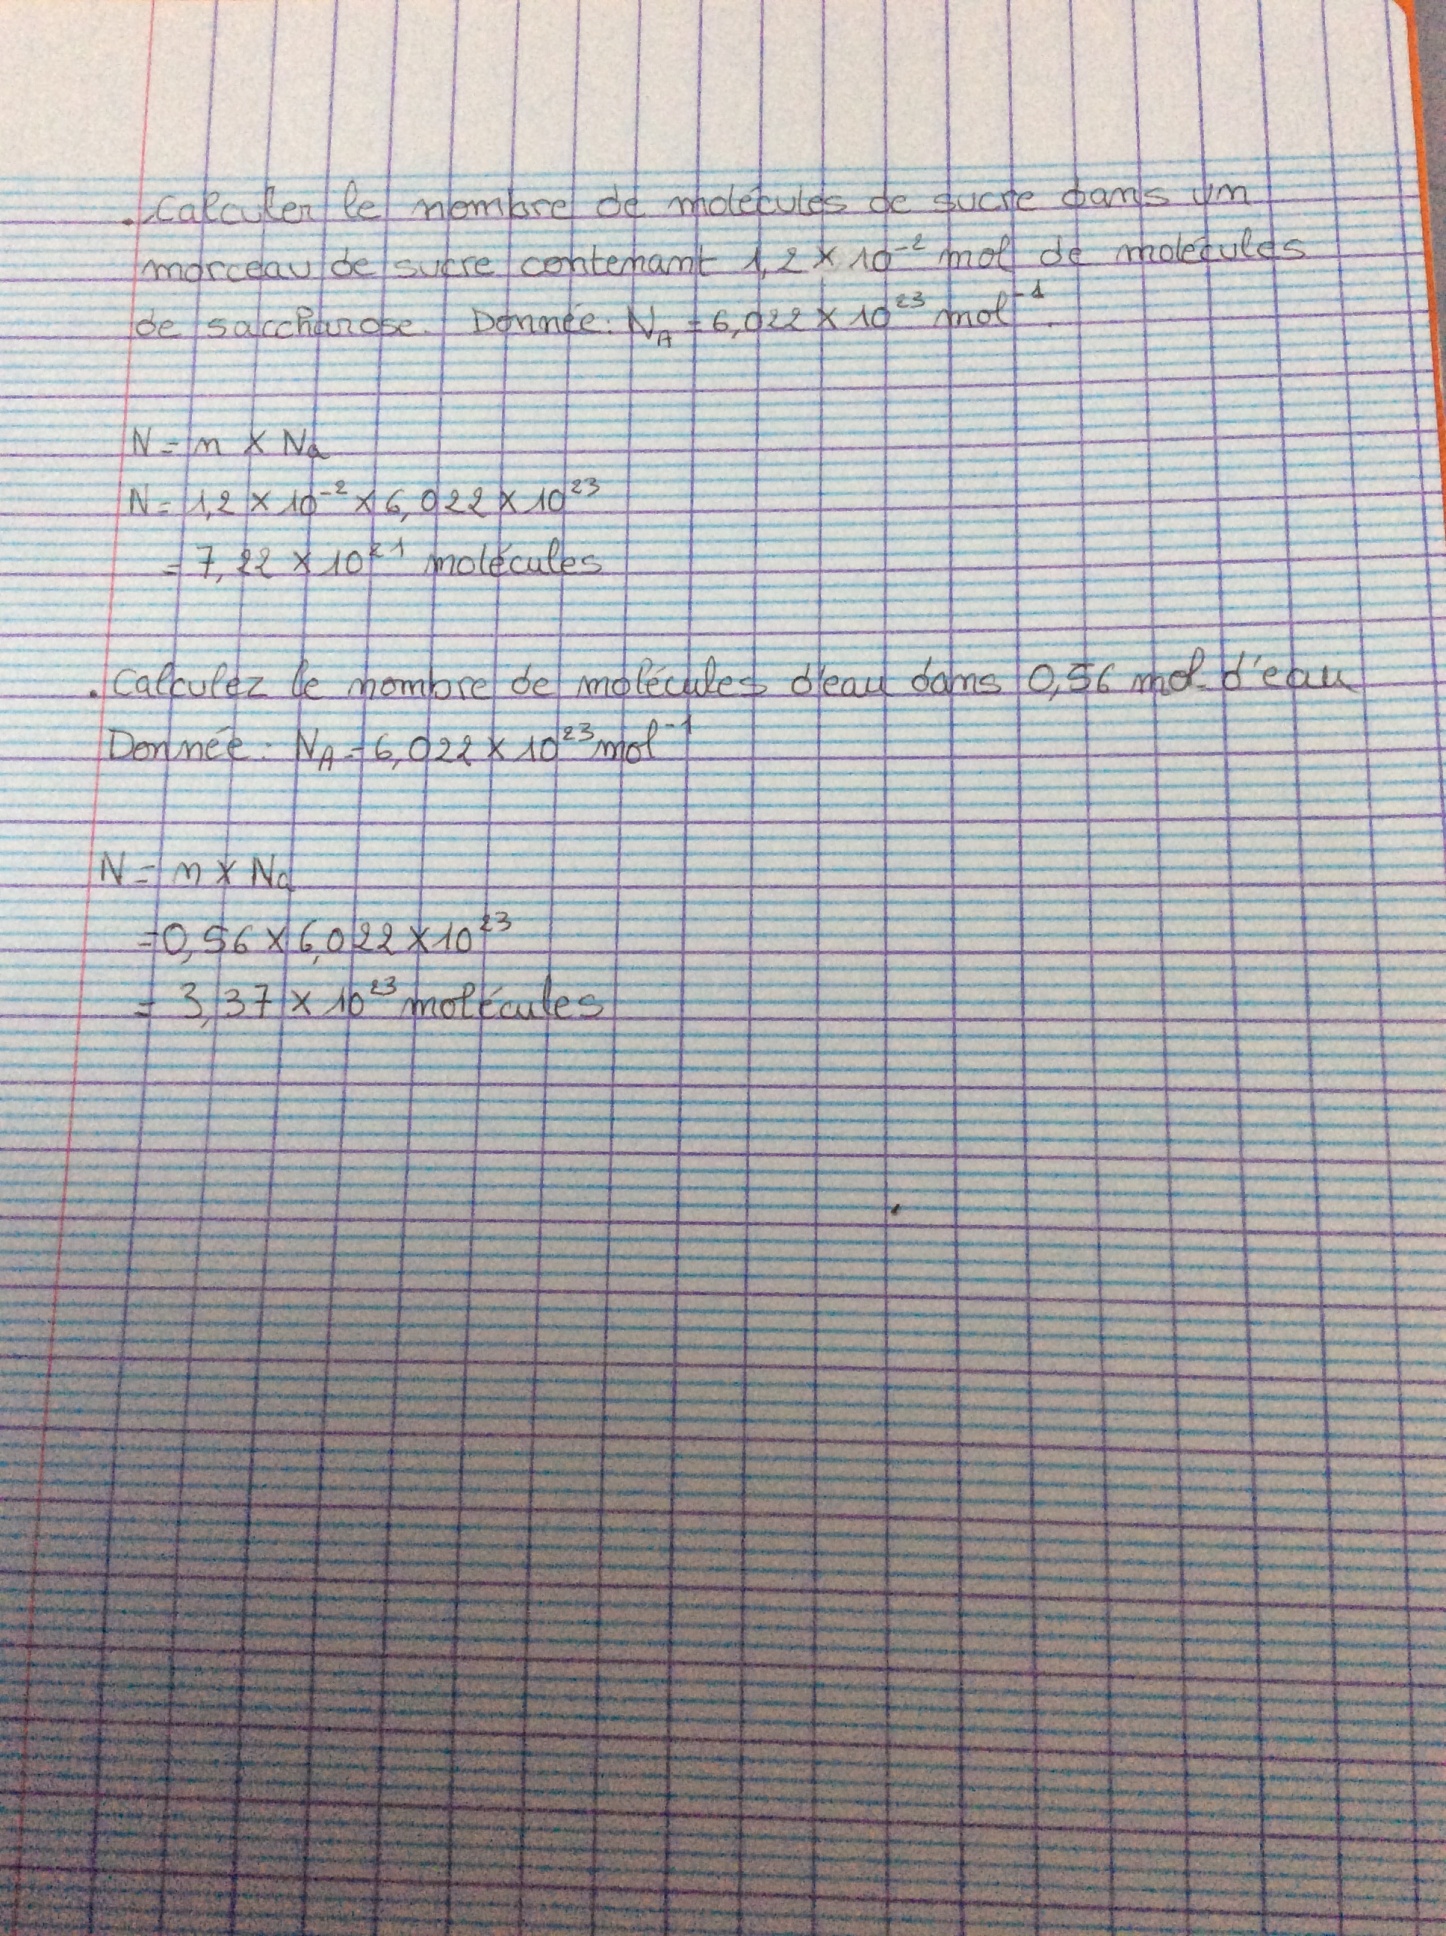 . Calculer le nombre de molécules de sucre dans un
morceau de sucre contenant 1,2 × 10⁻² mol de molécules
de saccharose. Donnée : N_A = 6,022 × 10²³ mol⁻¹.
N = n × Na
N = 1,2 × 10⁻² × 6,022 × 10²³
= 7,22 × 10²¹ molécules
. Calculez le nombre de molécules d'eau dans 0,56 mol d'eau
Donnée : N_A = 6,022 × 10²³ mol⁻¹
N = n × Na
= 0,56 × 6,022 × 10²³
= 3,37 × 10²³ molécules